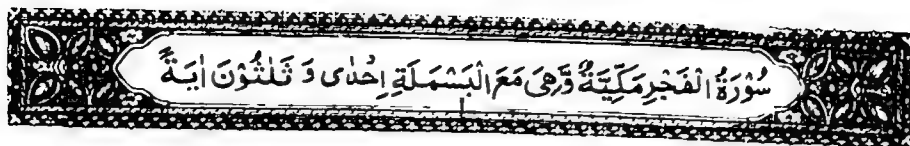 سُوْرَةُ الْفَجْرِ مَكِّيَّةٌ وَّهِيَ مَعَ الْبَسْمَلَةِ اِحْدٰى وَ ثَلٰثُوْنَ اٰيَةً